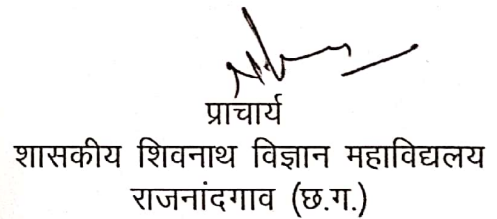 प्राचार्य
शासकीय शिवनाथ विज्ञान महाविद्यालय
राजनांदगाव (छ.ग.)